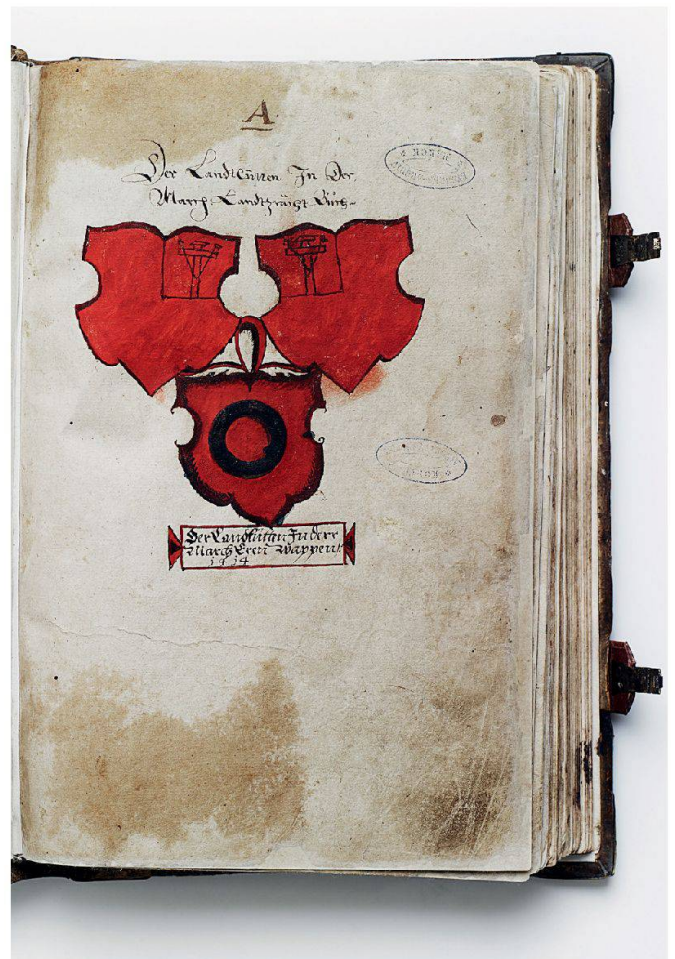 A
Der Landtlütten In Der
March Landträcht Buch
Der Landlütan In dere
March Eren Wappent
1514